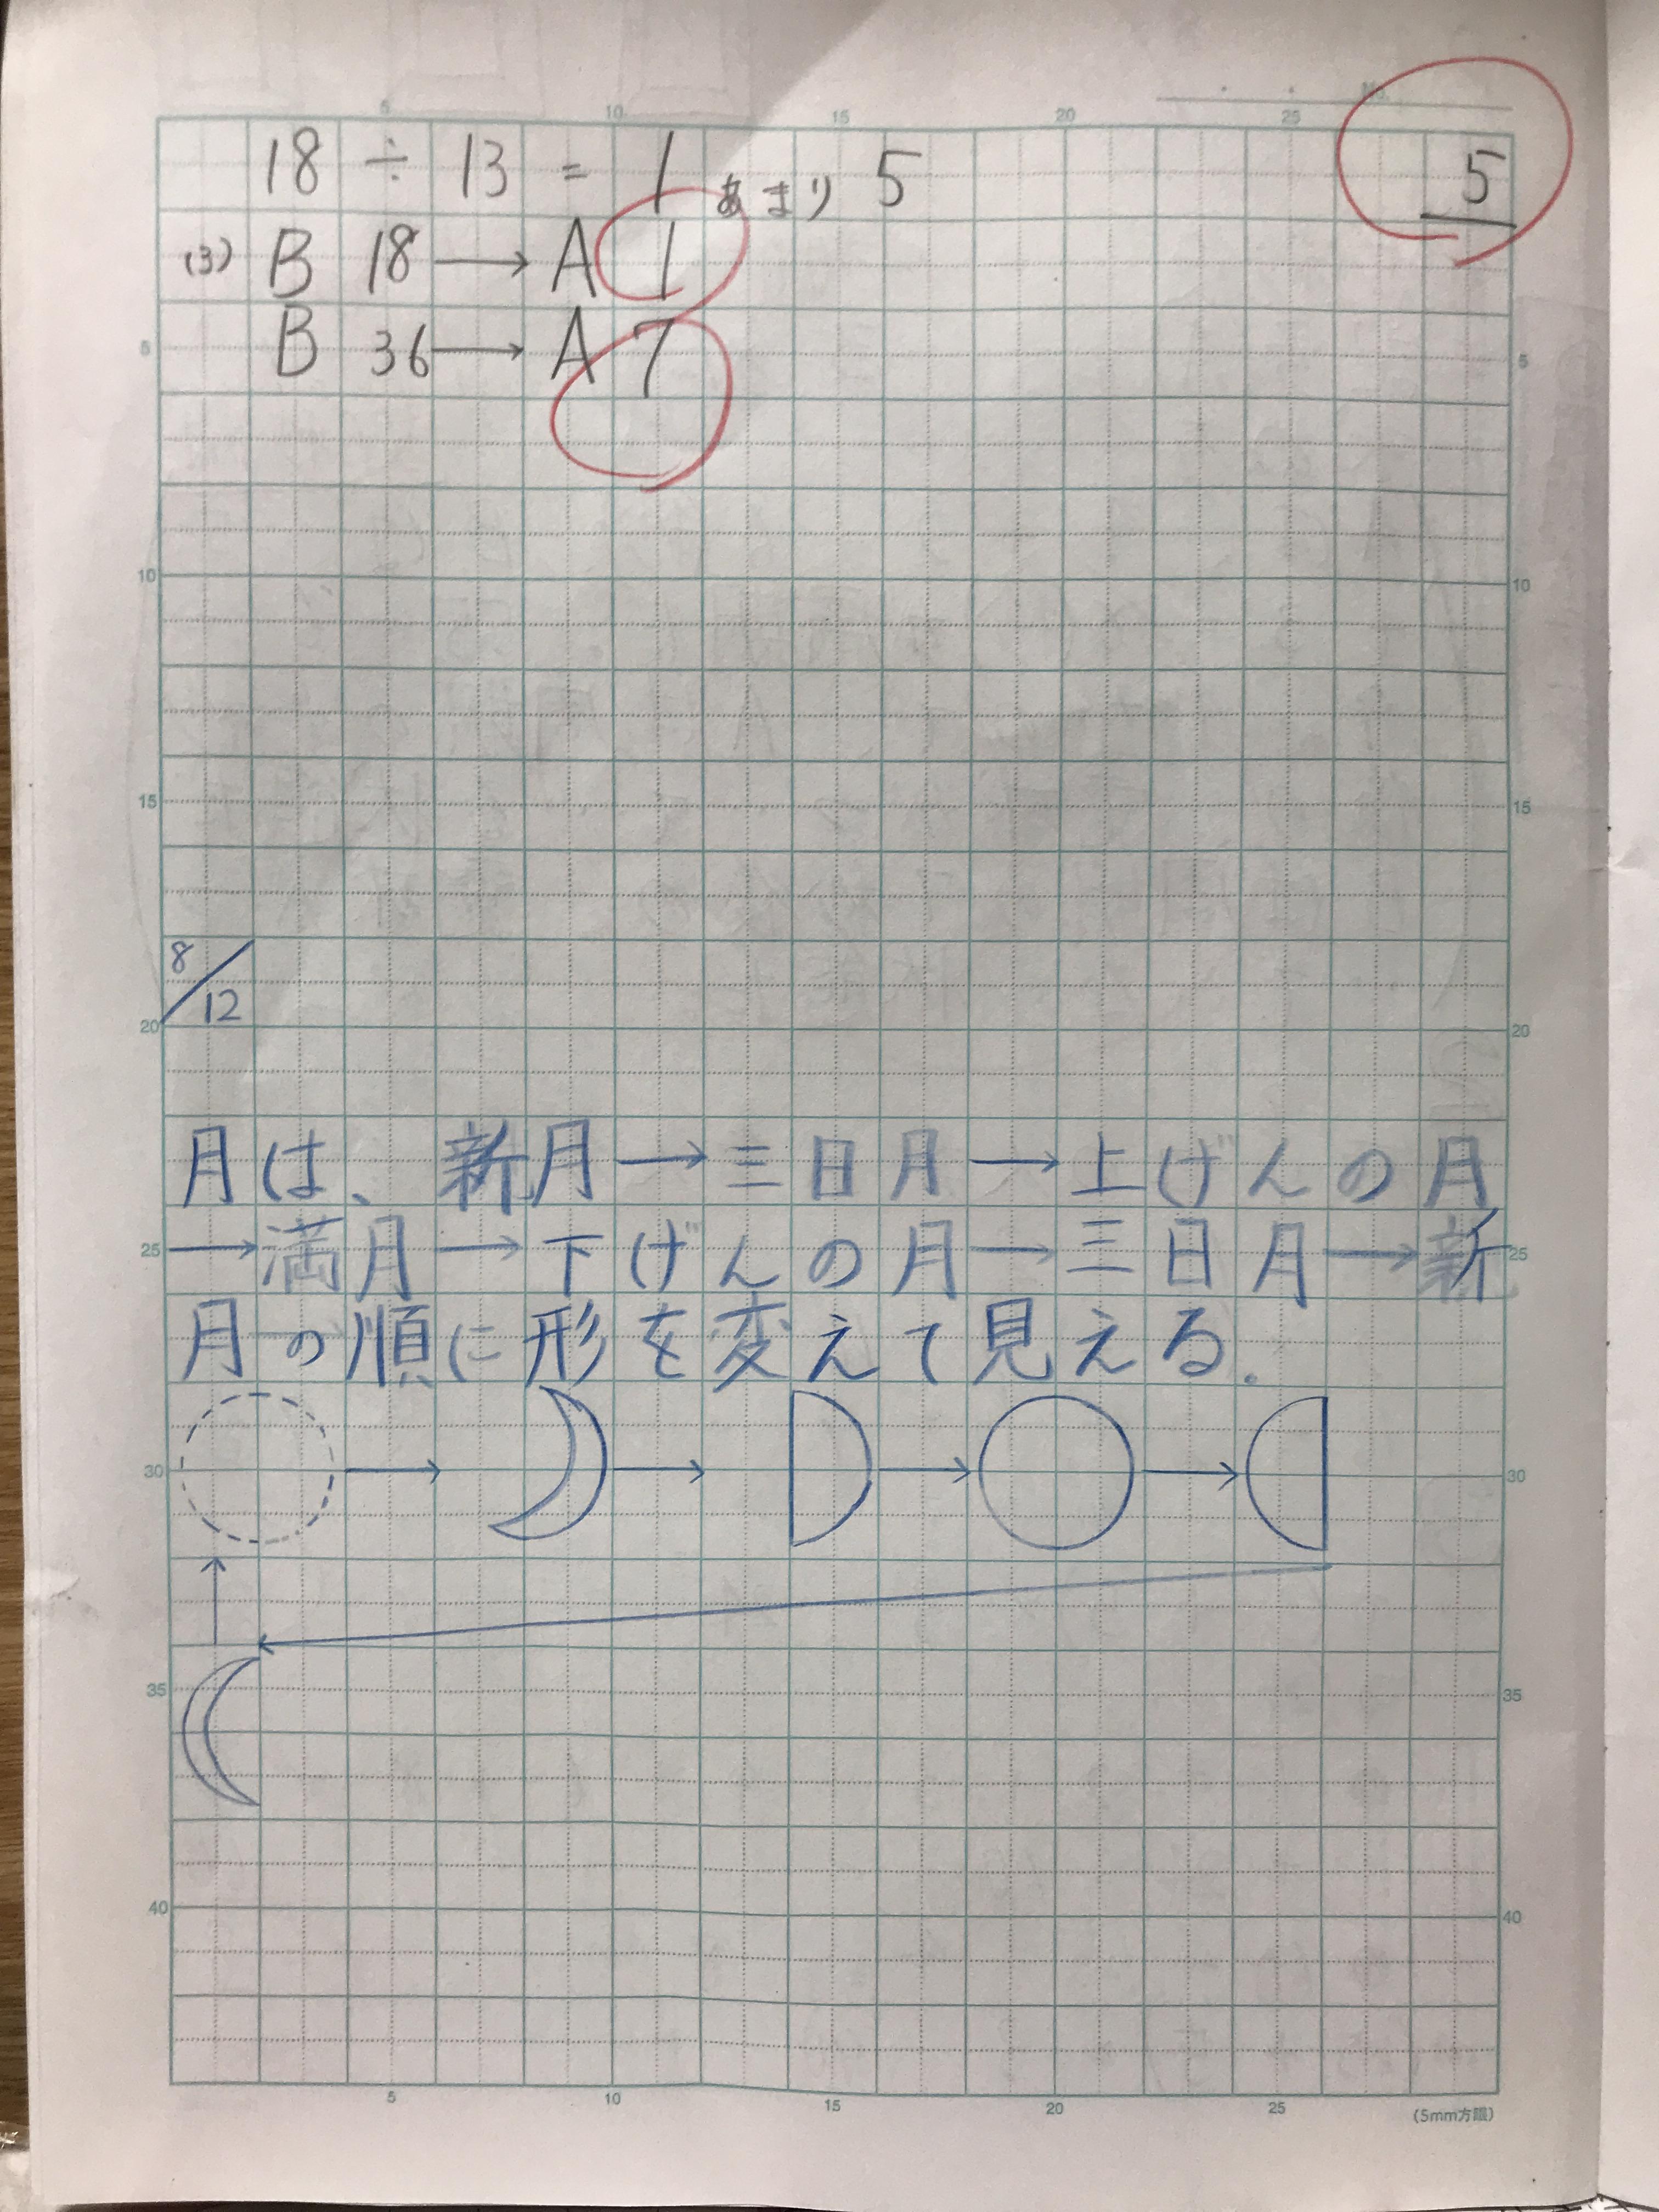 No.
5 10 15 20 25
18 ÷ 13 = 1 あまり 5 5
(3) B 18 → A 1
B 36 → A 7
5 5
10 10
15 15
8/12
20 20
月は、新月→三日月→上げんの月
→満月→下げんの月→三日月→新
25 25
月の順に形を変えて見える.
30 30
35 35
40 40
5 10 15 20 25
(5mm方眼)